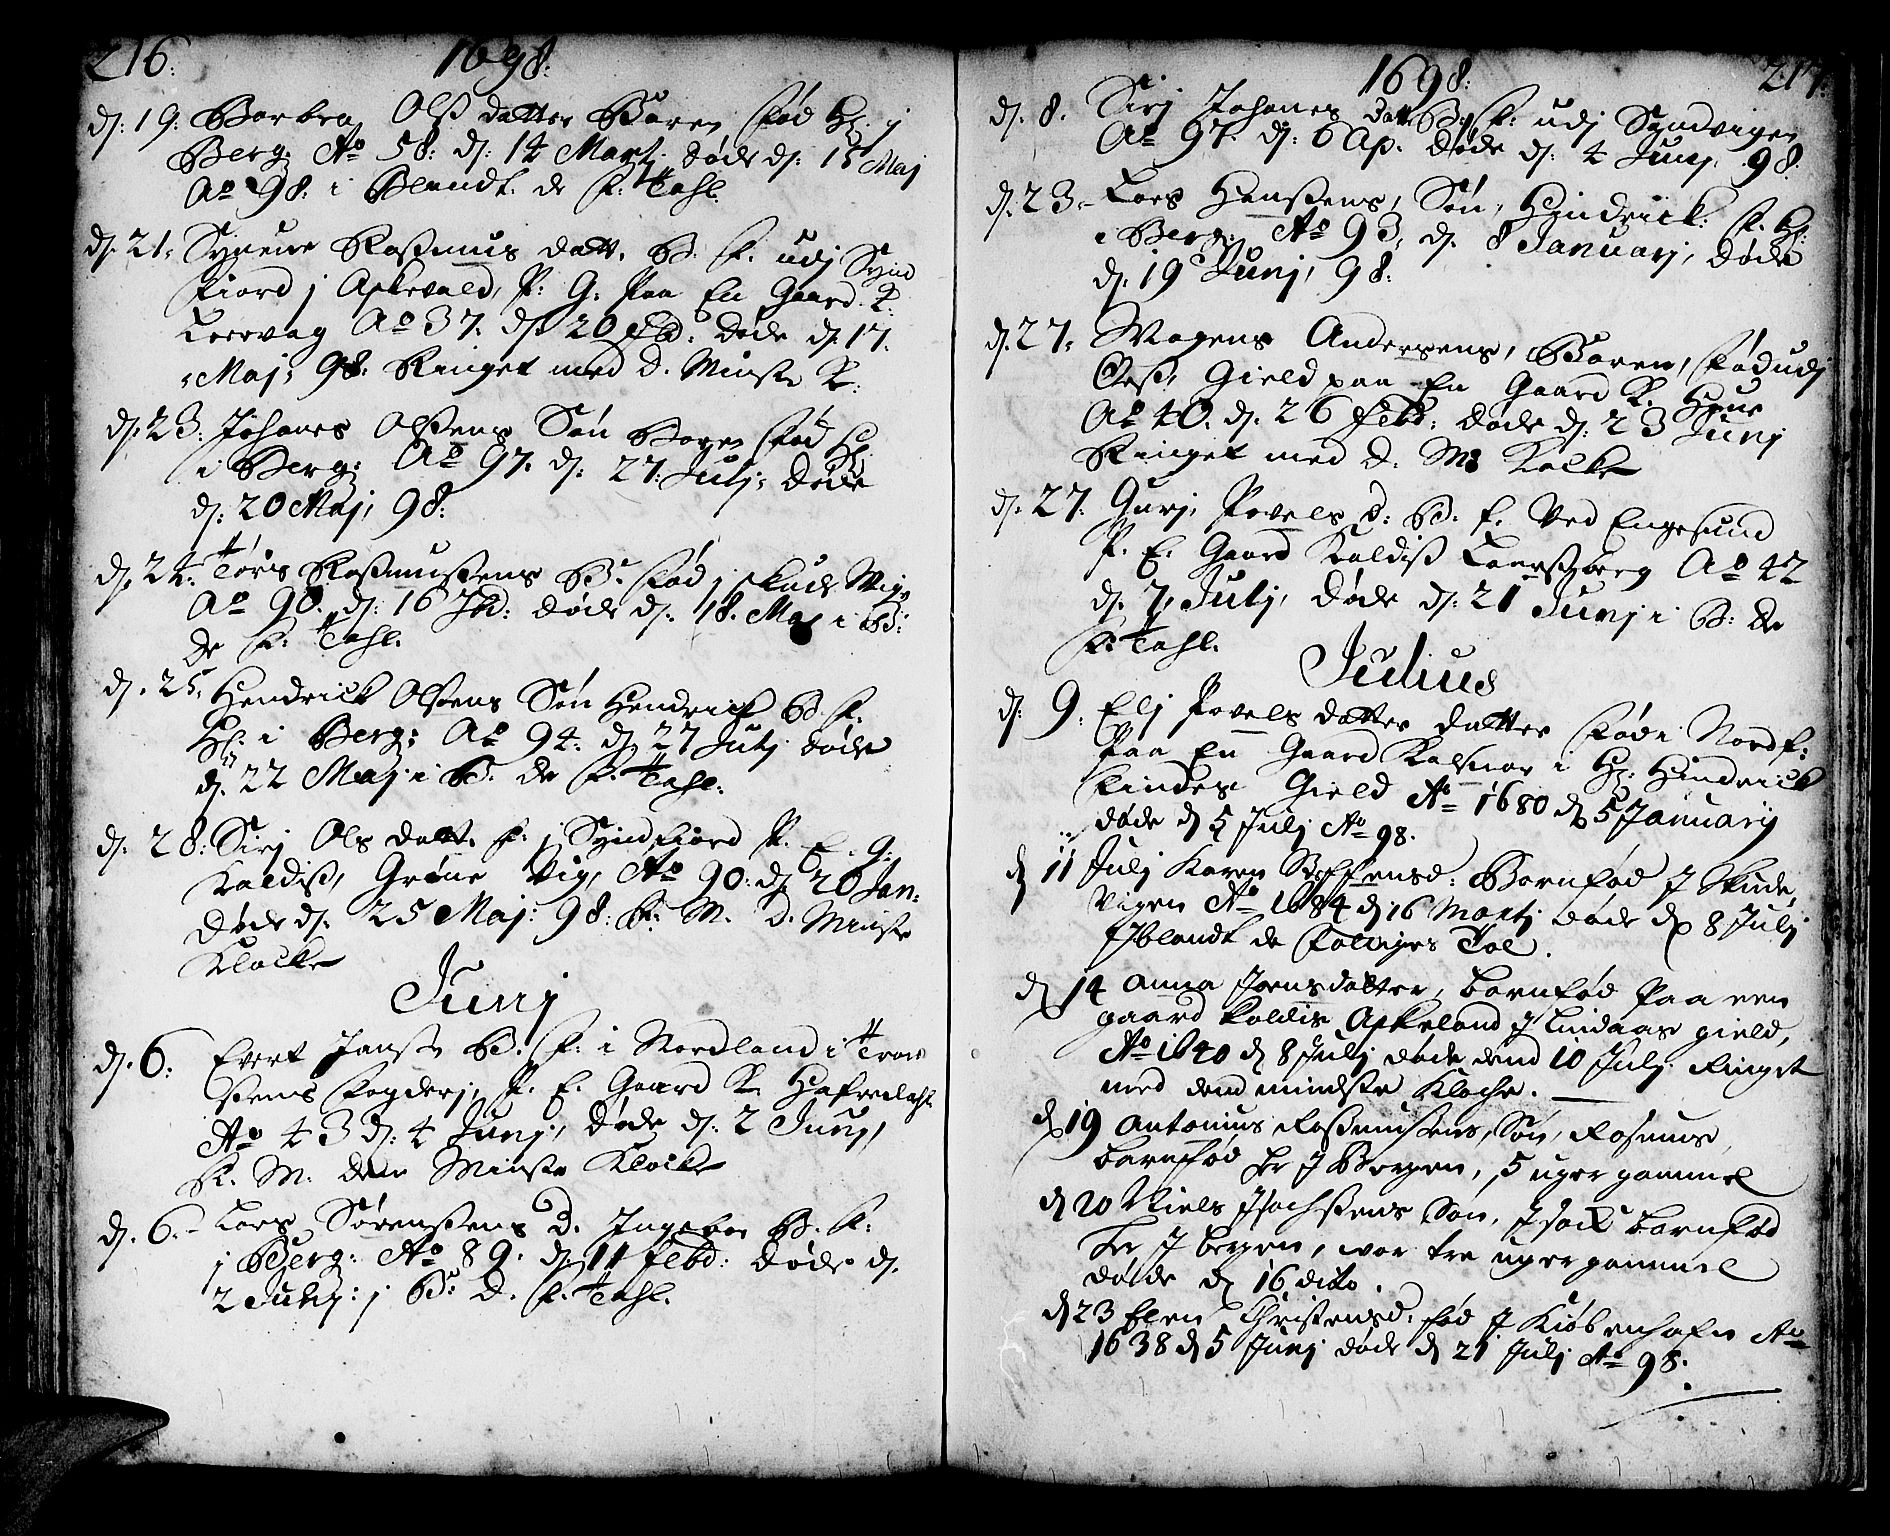 216: 1698:
d: 19: Barbra Ols datter Baren fød H: j
Berg: Ao 58: d: 14 Martj døde d: 15 Maj
Ao 98: i Blandt de f: Tahl.
d. 21, Synneve Rasmus datt. B. f. udj Synd
fiord j Askevold, P: G: Paa En Gaard K:
Leervag Ao 37. d. 20 Feb: døde d. 17.
Maj, 98. Ringet med d. Minste K:
d. 23. Johanes Olsens Søn Boren fød H:
i Berg: Ao 97. d: 27. Julj, døde
d: 20 Maj, 98:
d. 24: Tøris Rasmusens B: fød j Skude Wig,
Ao 90. d: 16 døde d. 18. Maj i B:
de f: Tahl.
d. 25, Hendrick Olsens Søn Hendrick B. f.
H: i Berg: Ao 94. d. 27 Julj døde
d. 22 Maj i B. de f. Tahl.
d. 28: Sirj Ols datt. f. j Syndfiord P. E. G:
Kaldiss, Grøne Vig, Ao 90: d. 20 Jan:
døde d. 25 Maj: 98: R: M. d. Minste
Klocke
Junj
d. 6: Evert Janss B. f: i Nordland i
fogderj, P. E. Gaard K.
Ao 43 d: 4 Junj, døde d. 2 Junj,
R. M. den Minste Klocke
d. 6. Lars Sørensens D. Ingebor B. f:
j Berg: Ao 89: d. 11 Febd: døde d.
2 Junj: j B: D. f. Tahl.
1698: 217.
d. 8. Sirj Johanes datt B: f: udj Syndvigen
Ao 97. d: 6 Ap. døde d. 4 Junj, 98.
d. 23. Lars Hansens, Søn, Hindrick: f. H:
i Berg: Ao 93, d. 8 Januarj, døde
d. 19 Junj, 98:
d. 27. Mogens Andersens, Baren, fød udj
Oess, Gield paa En Gaard K.
Ao 40. d. 26 Febd: døde d: 23 Junj
Ringet med d. Ms Kolck
d. 27. Gurj, Povels d: B: f. Ved Engesund
P. E. Gaard Kaldiss Ao 42
d. 7. Julj, døde d: 21 Junj i B: de
f. Tahl.
Julius
d: 9. Elj Povels datter datter fød i Nordf:
Paa En Gaard i H: Hindrick
Lindes Gield Ao 1680 d 5 January
døde d 5 Julj Ao 98.
d 11 Julj Karen Steffensd: Barnfød J Skude,
Vigen Ao 1684 d 16 Martj døde d 8 Julj
Jblandt de fattiges Tal.
d 14 Anna Joensdatter, barnfød Paa een
gaard kaldis Askeland J Lindaas gield,
Ao 1640 d 8 Julj døde dend 10 Julj. Ringet
med dend mindste Klocke.
d 19 Antonius Rasmussens, Søn, Rasmus,
barnfød her J Bergen, 5 uger gammel
d 20 Niels Jsachsens Søn, Jsack barnfød
her J bergen, war tre uger gammel
døde d 16 dito.
d 23 Elen Christensd: fød J Kiøbenhafn Ao
1638 d 5 Junj døde d 21 Julj Ao 98.